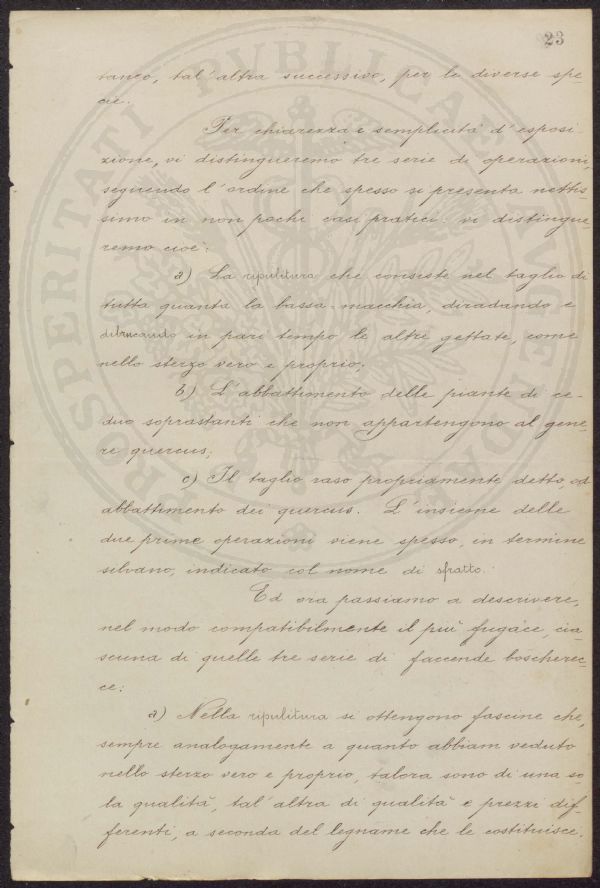 23
taneo, tal'altra successivo, per le diverse spe-
cie.
Per chiarezza e semplicità d'esposi-
zione, vi distingueremo tre serie di operazioni,
seguendo l'ordine che spesso si presenta nettis-
simo in non pochi casi pratici: vi distingue-
remo cioè:
a) La ripulitura che consiste nel taglio di
tutta quanta la bassa-macchia, diradando e
dibrucando in pari tempo le altre gettate, come
nello sterzo vero e proprio;
b) L'abbattimento delle piante di ce-
duo soprastanti che non appartengono al gene-
re quercus;
c) Il taglio raso propriamente detto, od
abbattimento dei quercus. L'insieme delle
due prime operazioni viene spesso, in termine
silvano, indicato col nome di sfratto.
Ed ora passiamo a descrivere,
nel modo compatibilmente il più fugace, cia-
scuna di quelle tre serie di faccende boscherec-
ce:
a) Nella ripulitura si ottengono fascine che,
sempre analogamente a quanto abbiam veduto
nello sterzo vero e proprio, talora sono di una so-
la qualità, tal'altra di qualità e prezzi dif-
ferenti, a seconda del legname che le costituisce.
PROSPERITATI PVBLICAE AVGENDAE